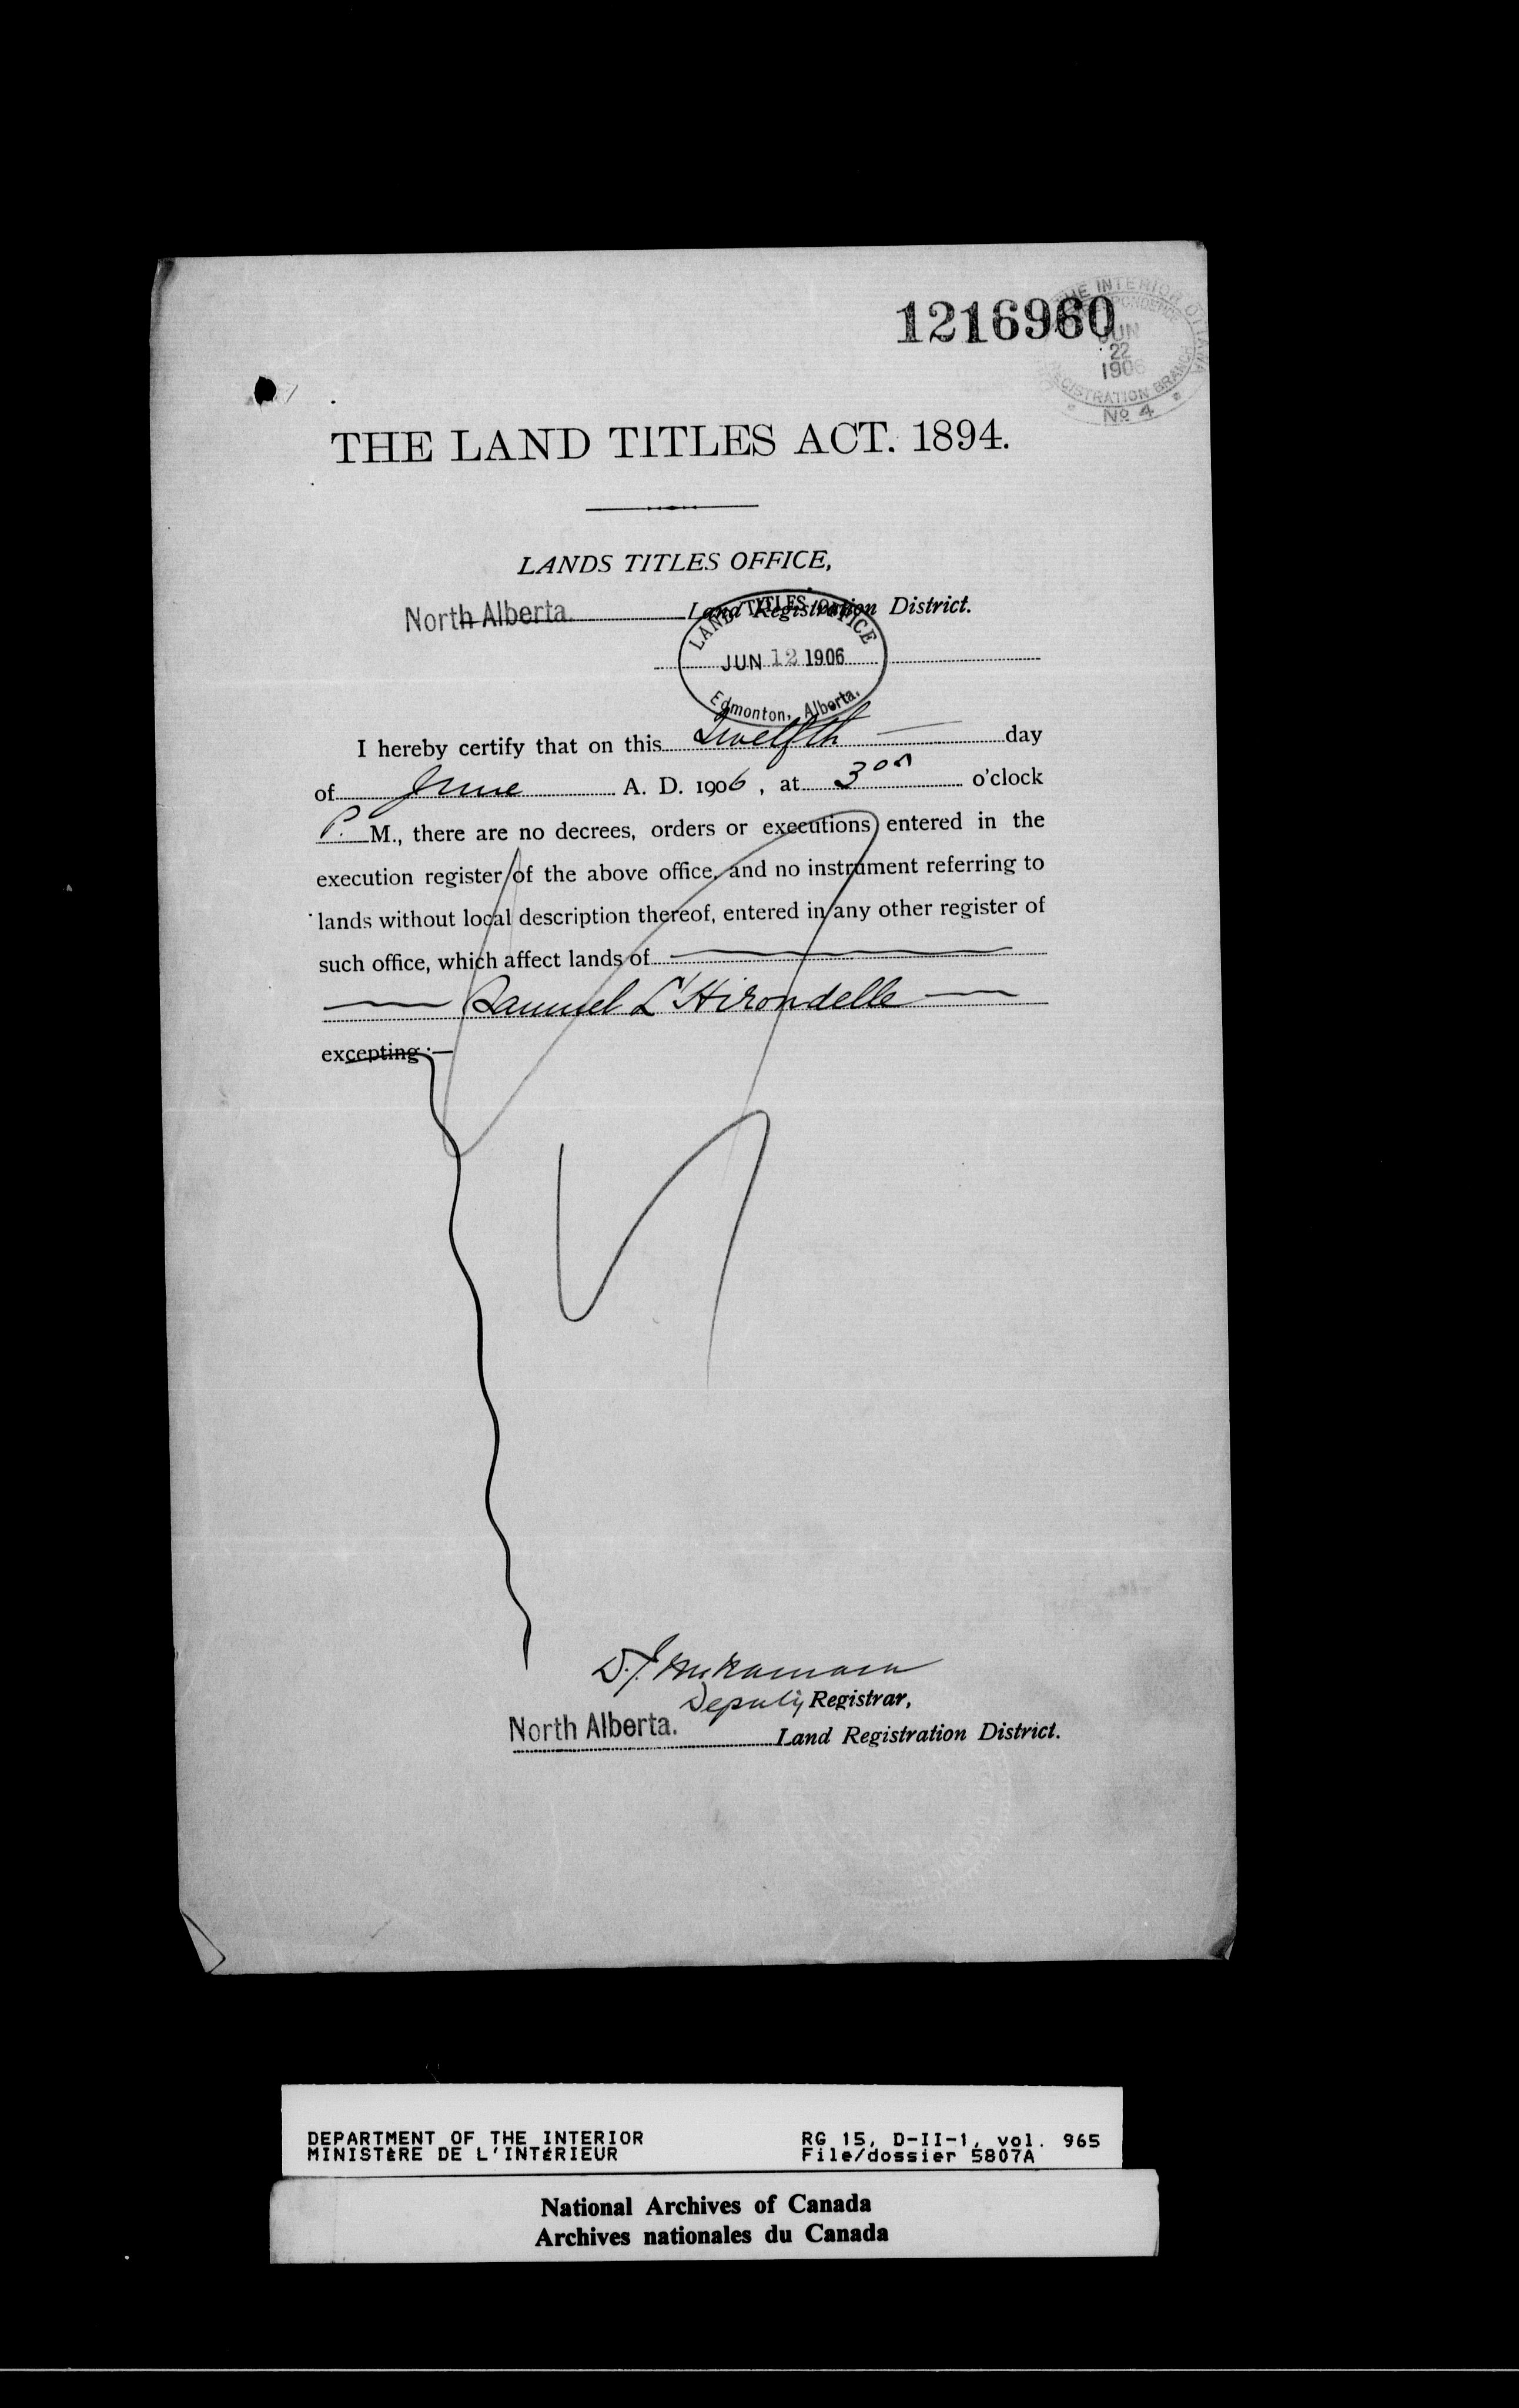 1216960
THE INTERIOR OTTAWA
CORRESPONDENCE
JUN
22
1906
REGISTRATION BRANCH
No 4
THE LAND TITLES ACT. 1894.
LANDS TITLES OFFICE,
North Alberta. Land Registration District.
LAND TITLES OFFICE
JUN 12 1906
Edmonton, Alberta.
I hereby certify that on this Twelfth day
of June A. D. 1906, at 3 00 o'clock
P. M., there are no decrees, orders or executions entered in the
execution register of the above office, and no instrument referring to
lands without local description thereof, entered in any other register of
such office, which affect lands of
Samuel L'Hirondelle
excepting :—
D. J.
Deputy Registrar,
North Alberta. Land Registration District.
DEPARTMENT OF THE INTERIOR RG 15, D-II-1, vol. 965
MINISTÈRE DE L'INTÉRIEUR File/dossier 5807A
National Archives of Canada
Archives nationales du Canada